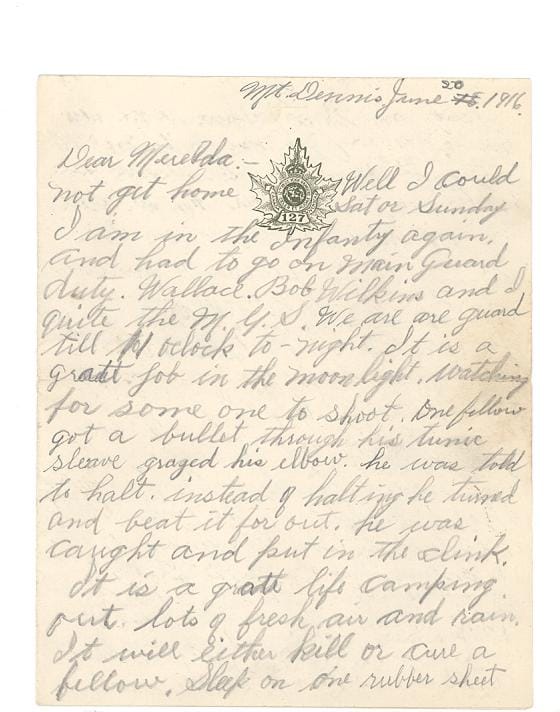 Mt. Dennis, June 20. 1916.
Dear Merelda:-
Well I could
not get home
Sat or Sunday
127
I am in the Infanty again,
and had to go on Main Guard
duty. Wallace. Bob Wilkins and I
quite the M. G. S. We are are guard
till 14 oclock to-night. It is a
gratt job in the moonlight. watching
for some one to shoot. One fellow
got a bullet through his tunic
sleave grazed his elbow. he was told
to halt. instead of halting he turned
and beat it for out. he was
caught and put in the clink.
It is a gratt life camping
out. lots of fresh air and rain.
It will either kill or cure a
fellow. Sleep on one rubber sheet